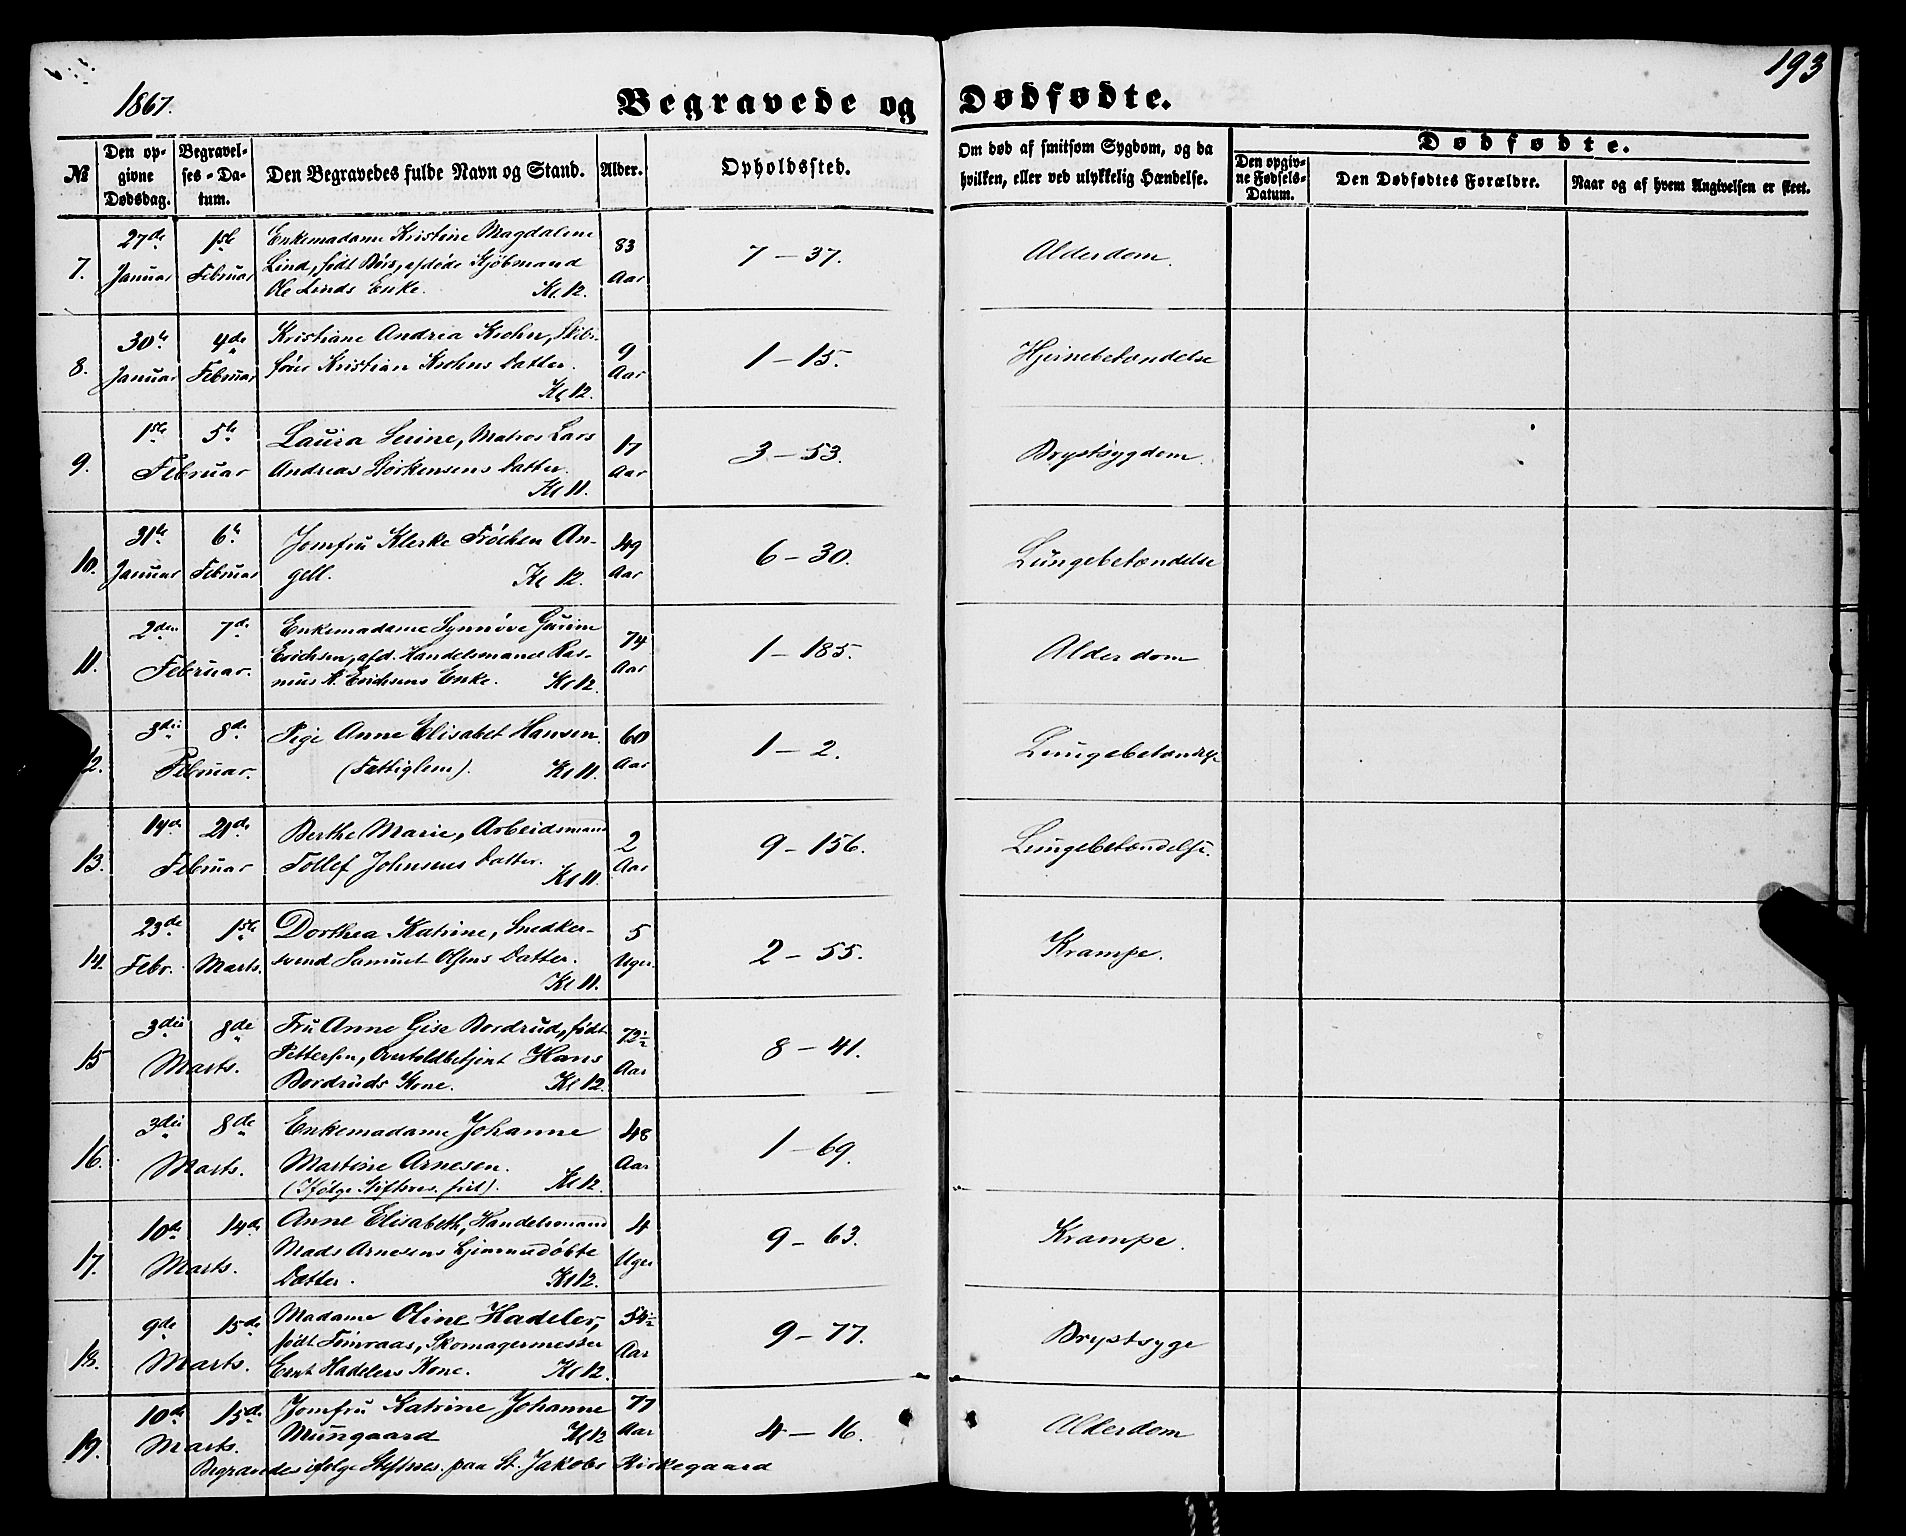 193
1867.
Begravede og Dødfødte.
№
Den opgivne Dødsdag.
Begravelses-Datum.
Den Begravedes fulde Navn og Stand.
Alder.
Opholdssted.
Om død af smitsom Sygdom, og da hvilken, eller ved ulykkelig Hændelse.
Dødfødte.
Den opgivne Fødsels-Datum.
Den Dødfødtes Forældre.
Naar og af hvem Angivelsen er skeet.
7. 27de Januar 1ste Februar Enkemadame Kristine Magdalene 83 Aar 7 – 37. Alderdom.
Lind, født afdøde Kjøbmand
Ole Linds Enke. Kl 12.
8. 30te Januar 4de Februar Kristiane Andrea Krohn, Skibs- 9 Aar 1 – 15. Hjernebetændelse
fører Kristian Krohns Datter.
Kl 12.
9. 1ste 5te Februar Laura Serine, Matros Lars 17 Aar 3 – 53. Brystsygdom.
Andreas Datter.
Kl 11.
10. 31te Januar 6te Februar Jomfru Klerke Frøchen An- 49 Aar 6 – 30. Lungebetændelse
gell. Kl 12.
11. 2den 7de Februar. Enkemadame Synnøve Gurine 74 Aar 1 – 185. Alderdom
Erichsen, afd. Handelsmand Ras-
mus A. Erichsens Enke. Kl 12.
12. 3die 8de Februar. Pige Anne Elisabet Hansen. 60 Aar 1 – 2. Lungebetændelse
(Fattiglem). Kl 11.
13. 14de 21de Februar Berthe Marie, Arbeidsmand 2 Aar 9 – 156. Lungebetændelse.
Tollef Johnsens Datter.
Kl 11.
14. 23de Febr. 1ste Marts. Dorthea Katrine, Snedker- 5 Uger. 2 – 55. Krampe.
svend Samuel Olsens Datter.
Kl 11.
15 3die 8de Marts. Fru Anne Gise Bordrud, født 72½ Aar 8 – 41.
Pettersen, Overtoldbetjent Hans
Bordruds Kone. Kl 12.
16. 3die 8de Marts. Enkemadame Johanne 48 Aar 1 – 69.
Martine Arnesen.
(Ifølge Skiftevæs.). Kl 12.
17. 10de 14de Marts. Anne Elisabeth, Handelsmand 4 Uger 9 – 63. Krampe.
Mads Arnesens hjemmedøbte
Datter. Kl 12.
18. 9de 15de Marts. Madame Oline Hadeler, 54½ Aar 9 – 77. Brystsyge
født Fimraas, Skomagermester
Ernt Hadelers Kone. Kl 12.
19. 10de 15de Marts. Jomfru Katrine Johanne 77 Aar 4 – 16. Alderdom
Mungaard Kl 12
Begravedes ifølge Skiftevæs. paa St. Jakobs Kirkegaard